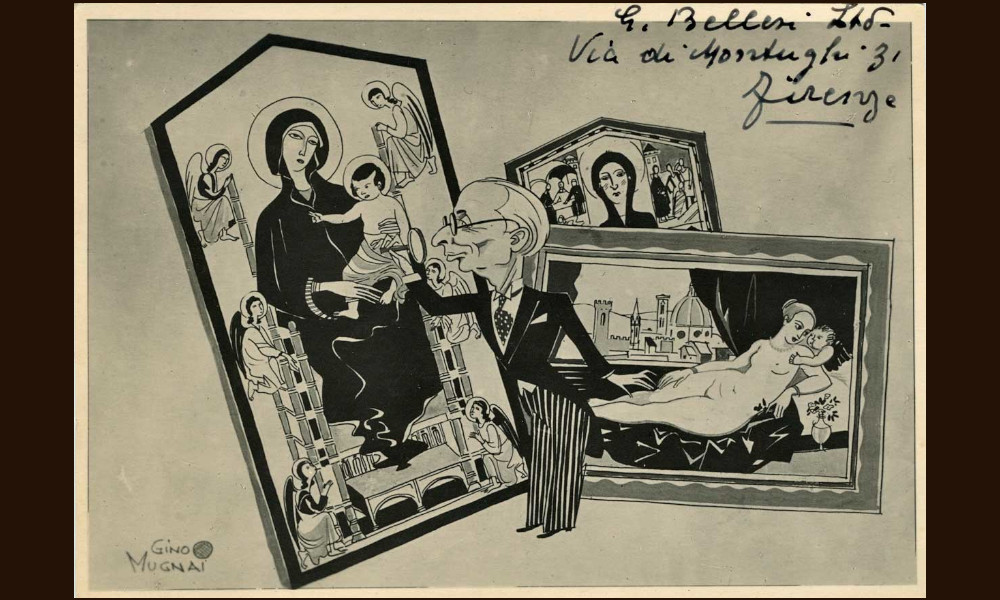 G. Bellesi Ltd-
Via di Montughi 31
Firenze
GINO
MUGNAI